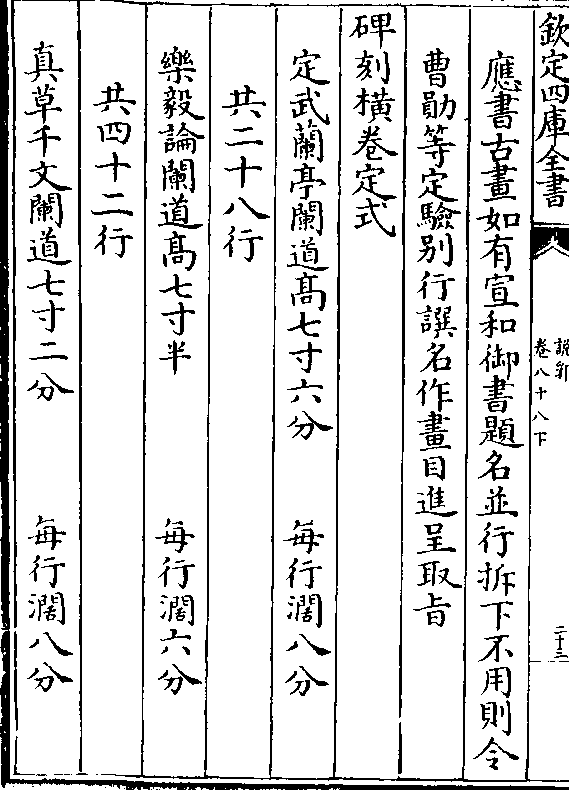 欽定四庫全書
說郛
卷八十八下
二十三
應書古畫如有宣和御書題名並行拆下不用則令
曹勛等定驗别行譔名作畫目進呈取旨
碑刻橫卷定式
定武蘭亭闌道髙七寸六分 每行濶八分
共二十八行
樂毅論闌道髙七寸半 每行濶六分
共四十二行
真草千文闌道七寸二分 每行濶八分